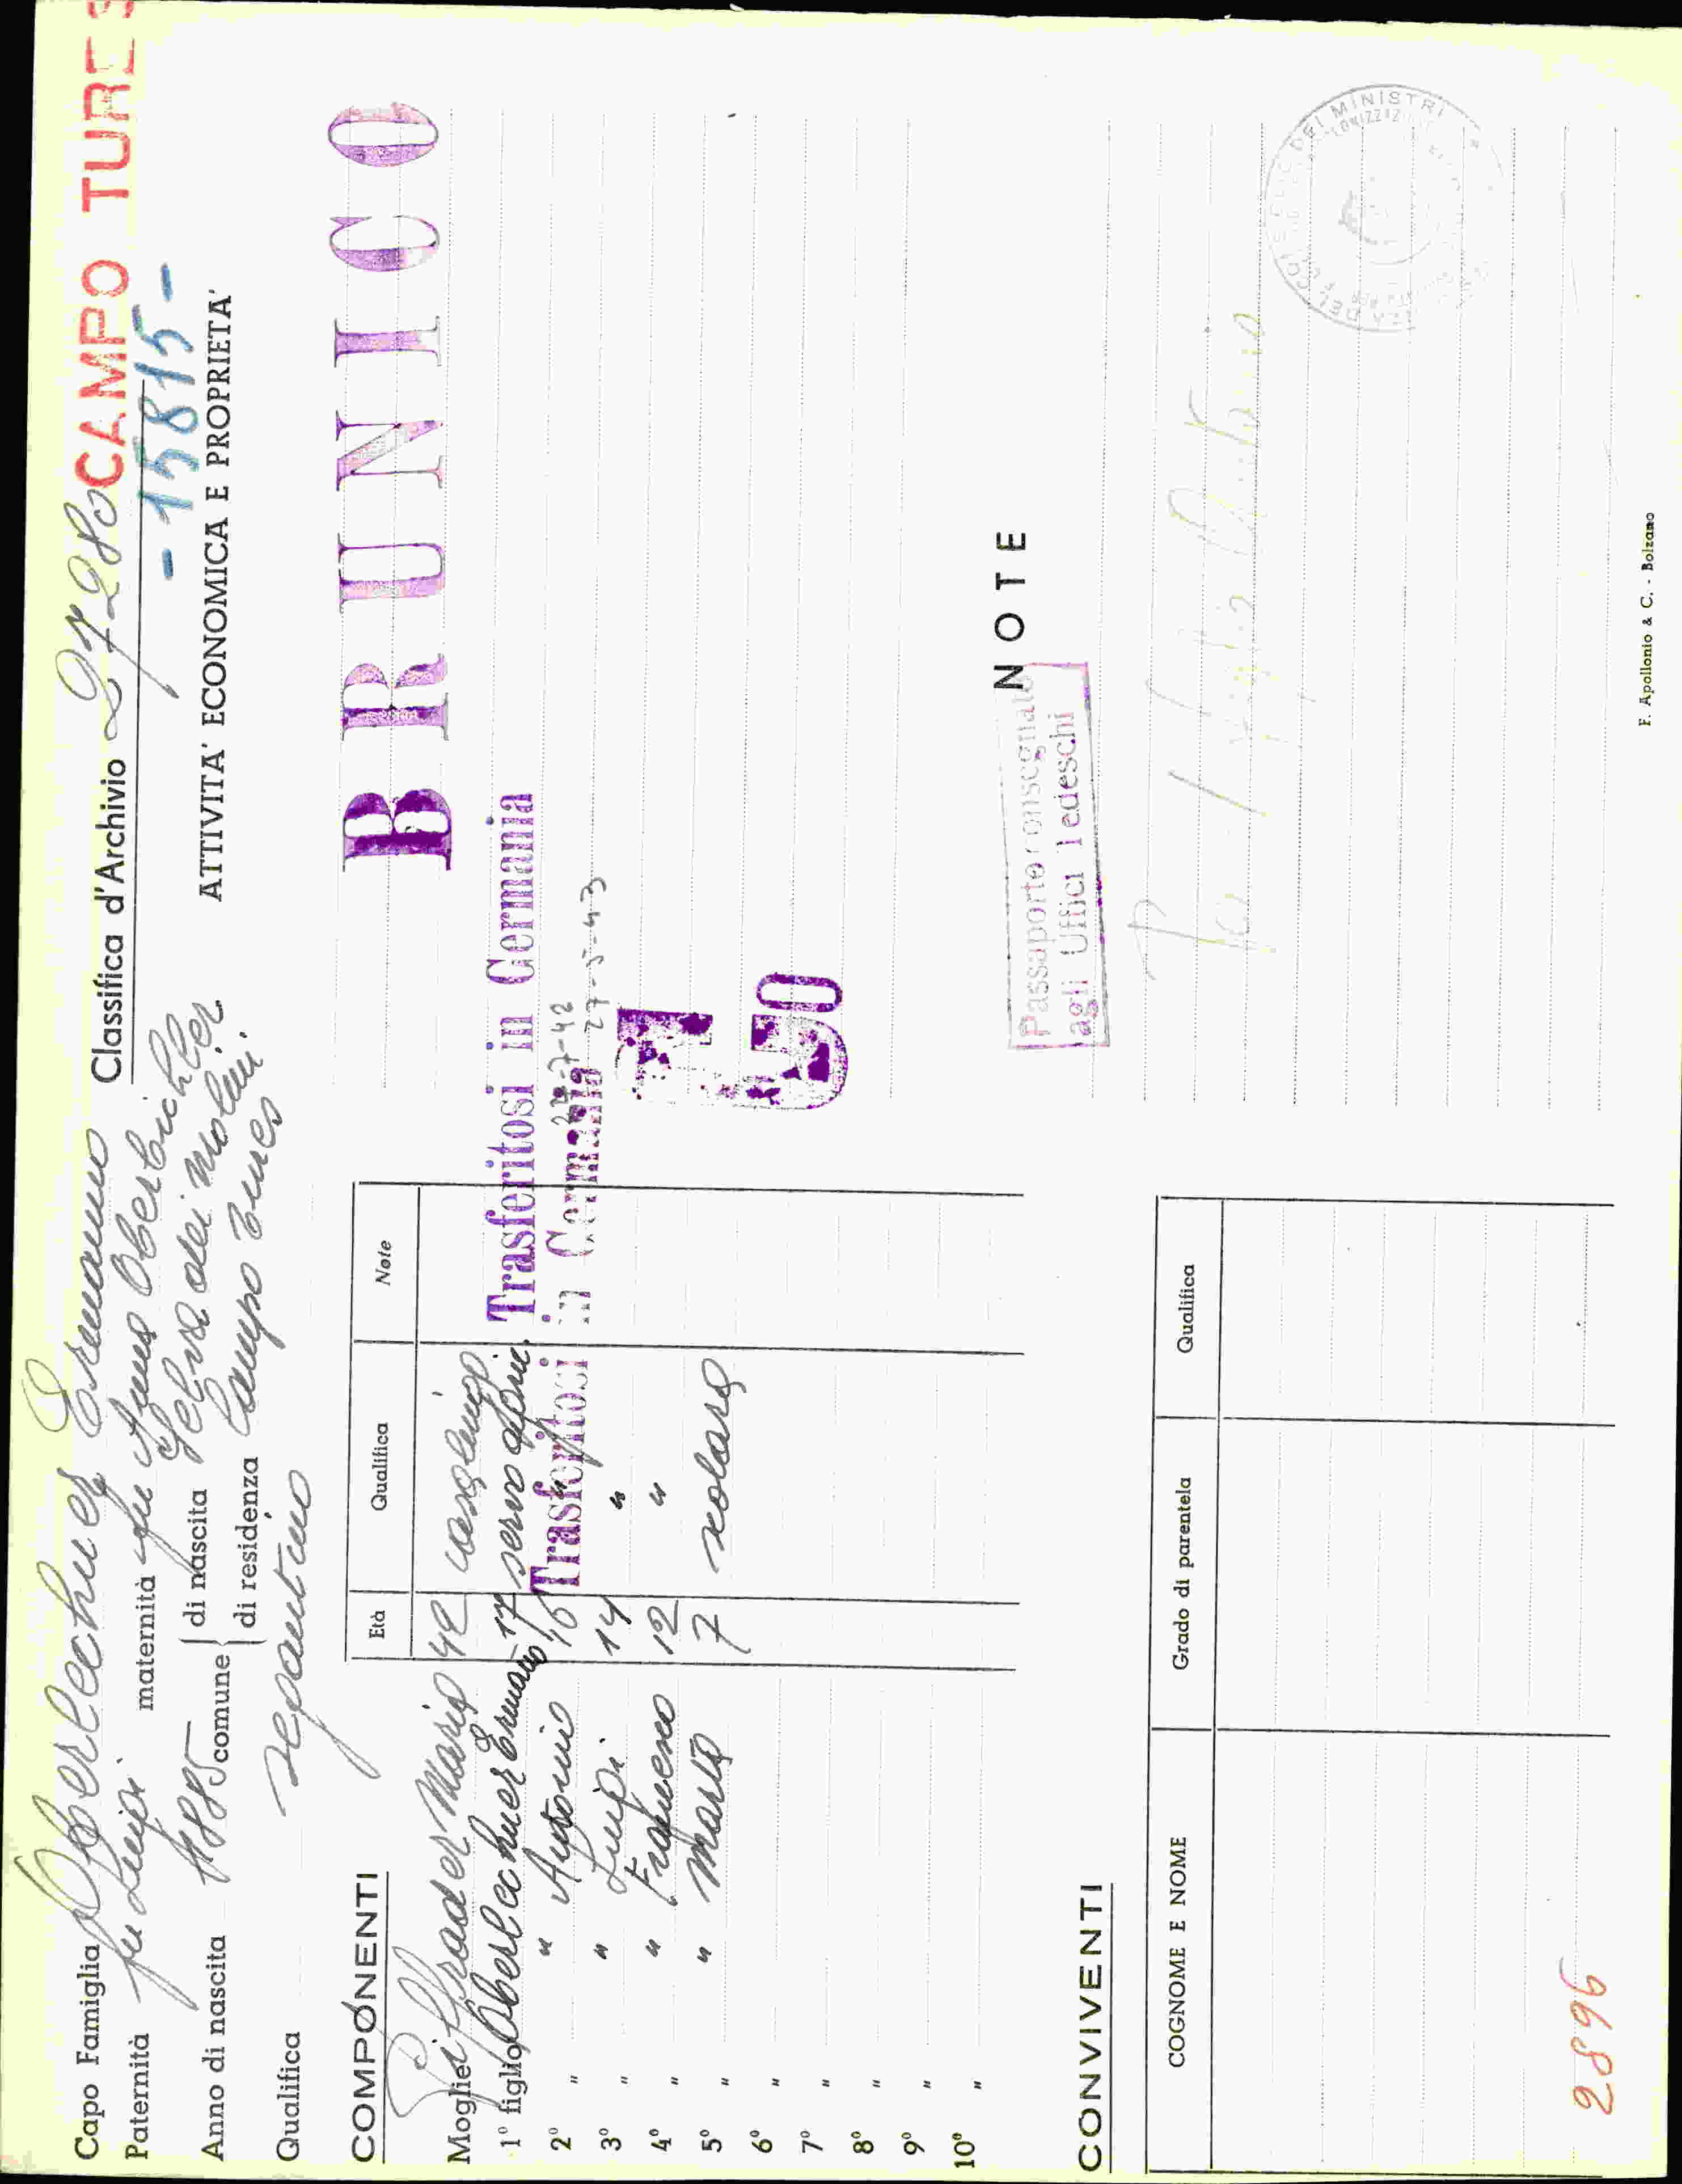 Capo Famiglia Oberlechner Ermanno Classifica d'Archivio 27280 CAMPO TURES
Paternità fu Luigi maternità fu Anna Oberbichler - 15815 -
Anno di nascita 1885 comune di nascita Selva dei Molini
di residenza Campo Tures
ATTIVITA' ECONOMICA E PROPRIETA'
Qualifica segantino
BRUNICO
COMPONENTI
Età Qualifica Note
Moglie Maria 42 casalinga
1º figlio Oberlechner Ermanno 17 servo
Trasferitosi in Germania
2º " " Antonio 16 "
Trasferitosi in Germania
27-7-42
27-5-43
3º " " Luigi 14 "
4º " " Francesco 12 "
5º " " Maria 7 scolara
50
6º "
7º "
8º "
9º "
10º "
NOTE
Passaporto consegnato
agli Uffici Tedeschi
CONVIVENTI
COGNOME E NOME Grado di parentela Qualifica
2896
F. Apollonio & C. - Bolzano